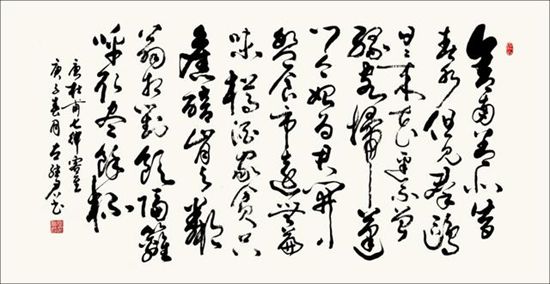 舍南舍北皆
春水但見群鷗
日日來花徑不曾
緣客掃蓬
門今始為君開
盤飧市遠無兼
味樽酒家貧只
舊醅肯與鄰
翁相對飲隔籬
呼取盡餘杯
唐杜甫七律客至
庚子春月書